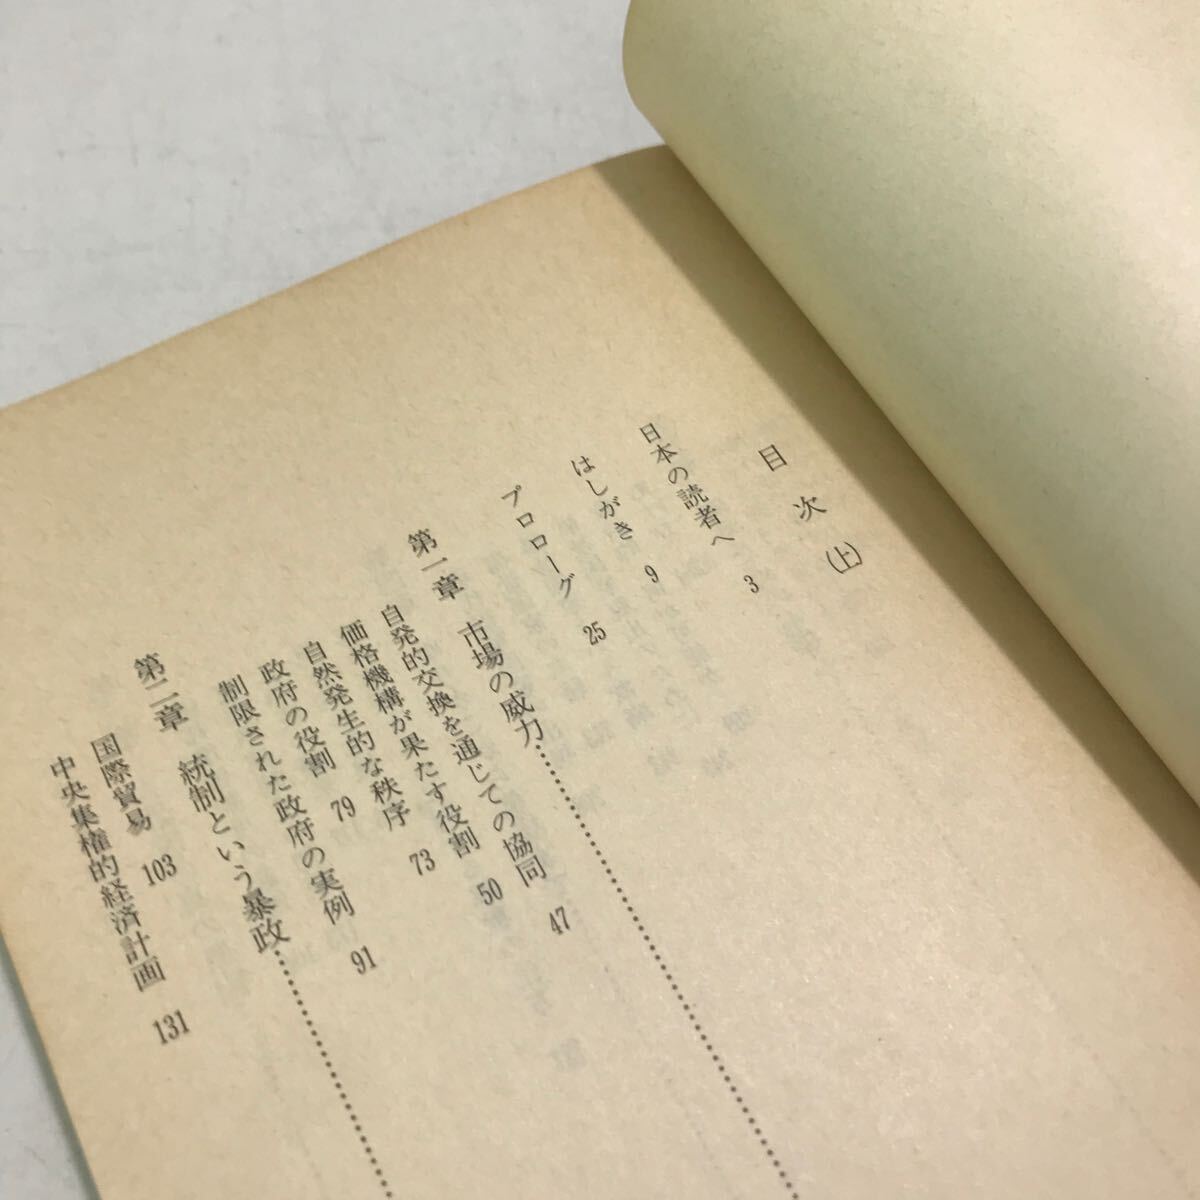 目次（上）
日本の読者へ 3
はしがき 9
プロローグ 25
第一章 市場の威力……………………………
自発的交換を通じての協同 47
価格機構が果たす役割 50
自然発生的な秩序 73
政府の役割 79
制限された政府の実例 91
第二章 統制という暴政……………………
国際貿易 103
中央集権的経済計画 131